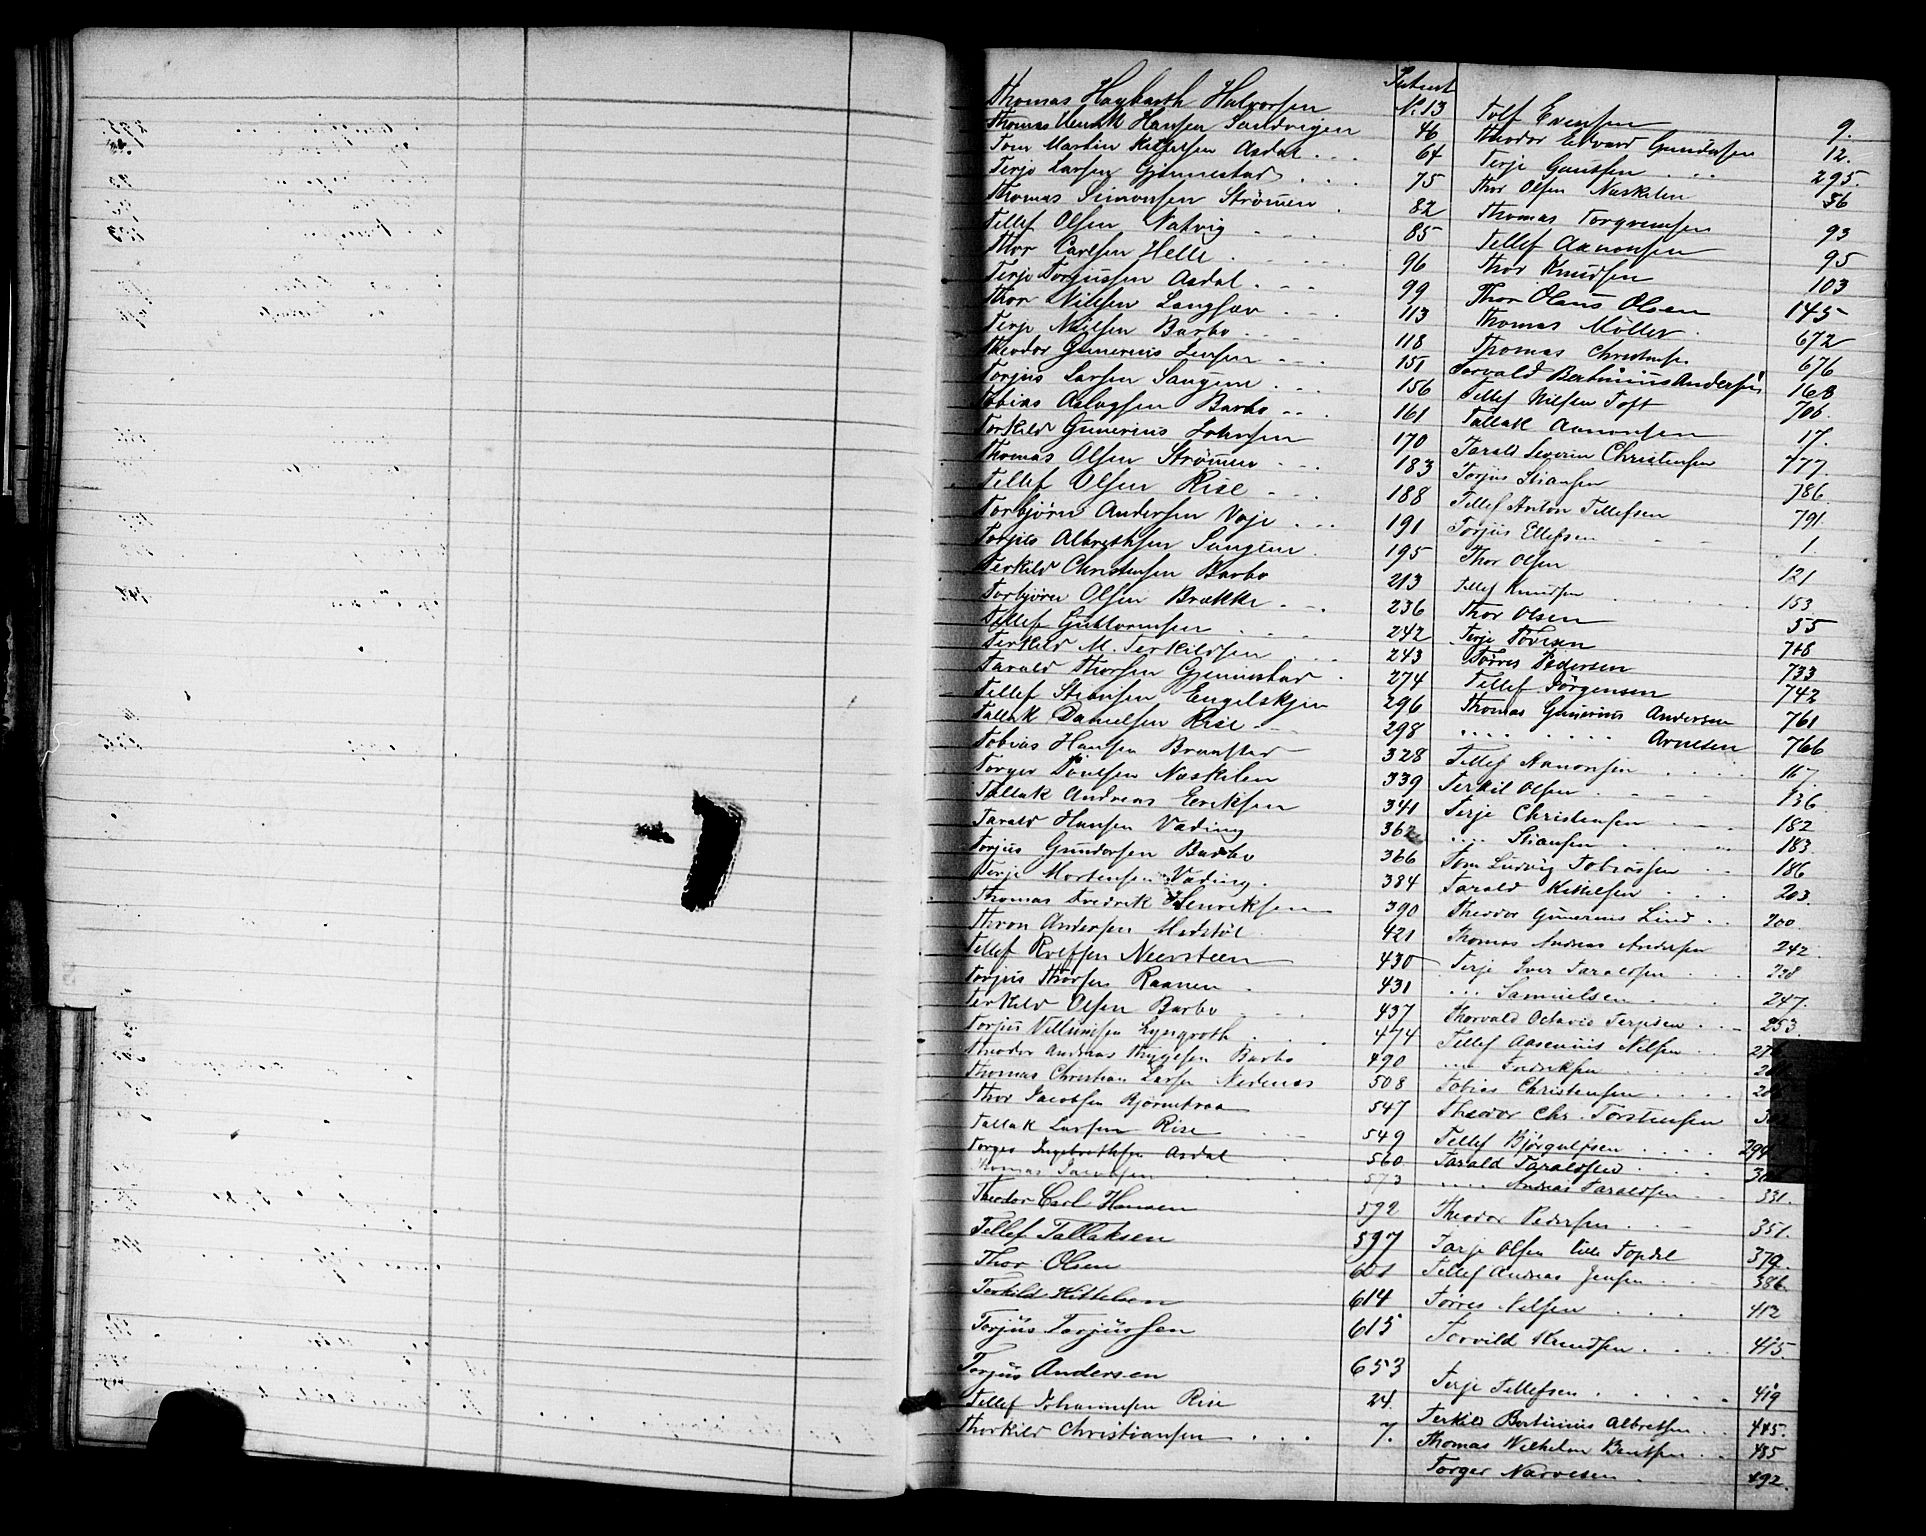 Patent
Thomas Haybarth Halvorsen No. 13
Thomas Henrik Hansen Sandvigen 46
Tom Martin Kittelsen Asdal . . . 64
Terje Larsen Gjennestad . . . . 75
Thomas Simonsen Strömen . 82
Tellef Olsen Natvig . . . . 85
Thor Carlsen Helle . . . . . 96
Terje Torgussen Asdal . . . 99
Thor Nilsen Langsæv . . . 113
Terje Nilsen Barbo . . . 118
Theodor Gunerius Jensen . . . 151
Torjus Larsen Songene . . . 156
Tobias Aslagsen Barbo . . . 161
Torkild Gunerius Johnsen 170
Thomas Olsen Strömen . . . 183
Tellef Olsen Rise . . . 188
Torbjörn Andersen Voje . . . 191
Torjus Albrethsen Songene . 195
Terkild Christensen Barbo 213
Torbjörn Olsen Brække . . . 236
Tellef Guttormsen . . . 242
Terkild M. Terkildsen . . . 243
Tarald Thorsen Gjennestad . 274
Tellef Stiansen Engelskjön 296
Tallak Danielsen Rise . . . 298
Tobias Hansen 328
Torger Poulsen Næskilen 339
Tallak Andreas Eriksen 341
Tarald Hansen Vading 362
Torjus Gundersen Barbo 366
Terje Mortensen Vading . 384
Thomas Fredrik Henriksen 390
Thron Andersen Medstöl 421
Tellef Rolfsen Neersteen 430
Torjus Thorsen Raanen . 431
Terkild Olsen Barbo . . . 437
Torjus Villumsen Lyngroth . . . 474
Theodor Andreas Thygesen Barbo 490
Thomas Christian Larsen Nedenæs 508
Thor Jacobsen Bjørnetraa 547
Tallak Larsen Rise . . . 549
Torger Ingebrethsen Asdal . 560
Thomas Jacobsen . . . . 573
Theodor Carl Hansen 592
Tellef Tallaksen 597
Thor Olsen 601
Terkild Kittelsen 614
Torjus Torjussen 615
Torjus Andersen 653
Tellef Johannesen Rise 24.
Thorkild Christiansen . . . 7.
Tolf Evensen 9.
Theodor Edvard Gundersen 12.
Terje Gautsen . . . 295.
Thor Olsen Næskilen 56
Thomas Torgrimsen 93
Tellef Aanonsen 95
Thor Knudsen 103
Thor Olaus Olsen 145
Thomas Möller . 672
Thomas Christensen 676
Torvald Bertinius Andersen 168
Tellef Nilsen Toft 706
Tallak Aanonsen 17.
Tarald Severin Christensen 777
Torjus Stiansen 786
Tellef Anton Tellefsen 791.
Torjus Ellefsen . . . 1.
Thor Olsen 121
Tellef Knudsen . . . . 153
Thor Olsen 55
Terje Tovesen 718
Törres Pedersen 733
Tellef Jörgensen 742
Thomas Gunerius Andersen 761
. . . . . . . . . Arnesen 766
Tellef Aanonsen . . . . 167
Terkil Olsen . . . . 136
Terje Christensen . . . . 182
. . . . Stiansen . . . . 183
Tom Ludvig Tobiassen . . 186
Tarald Kittelsen . . . 203.
Theodor Gunerius Lind . . 200.
Thomas Andreas Andersen 242.
Terje Iver Taraldsen . . . 238
. . . Samuelsen . . . 247.
Thorvald Octavio Terjesen . . . 253.
Tellef Aasenius Nilsen . .
. . . Fredriksen . . . .
Tobias Christensen . . . .
Theodor Chr. Torstensen
Tellef Bjørgulfsen . . . . 294
Tarald Taraldsen . . . .
. . . . Andreas Taraldsen . . 331.
Theodor Pedersen . . . 351.
Tarje Olsen lille Topdal 379.
Tellef Andreas Jensen . . . 386.
Törres Nilsen . . . . 412
Torvild Knudsen . . . . 415.
Terje Tellefsen . . . . . 419
Terkild Bertinius Albretsen . . 445.
Thomas Wilhelm Bentsen . . 485
Torger Narvesen . . . 492.